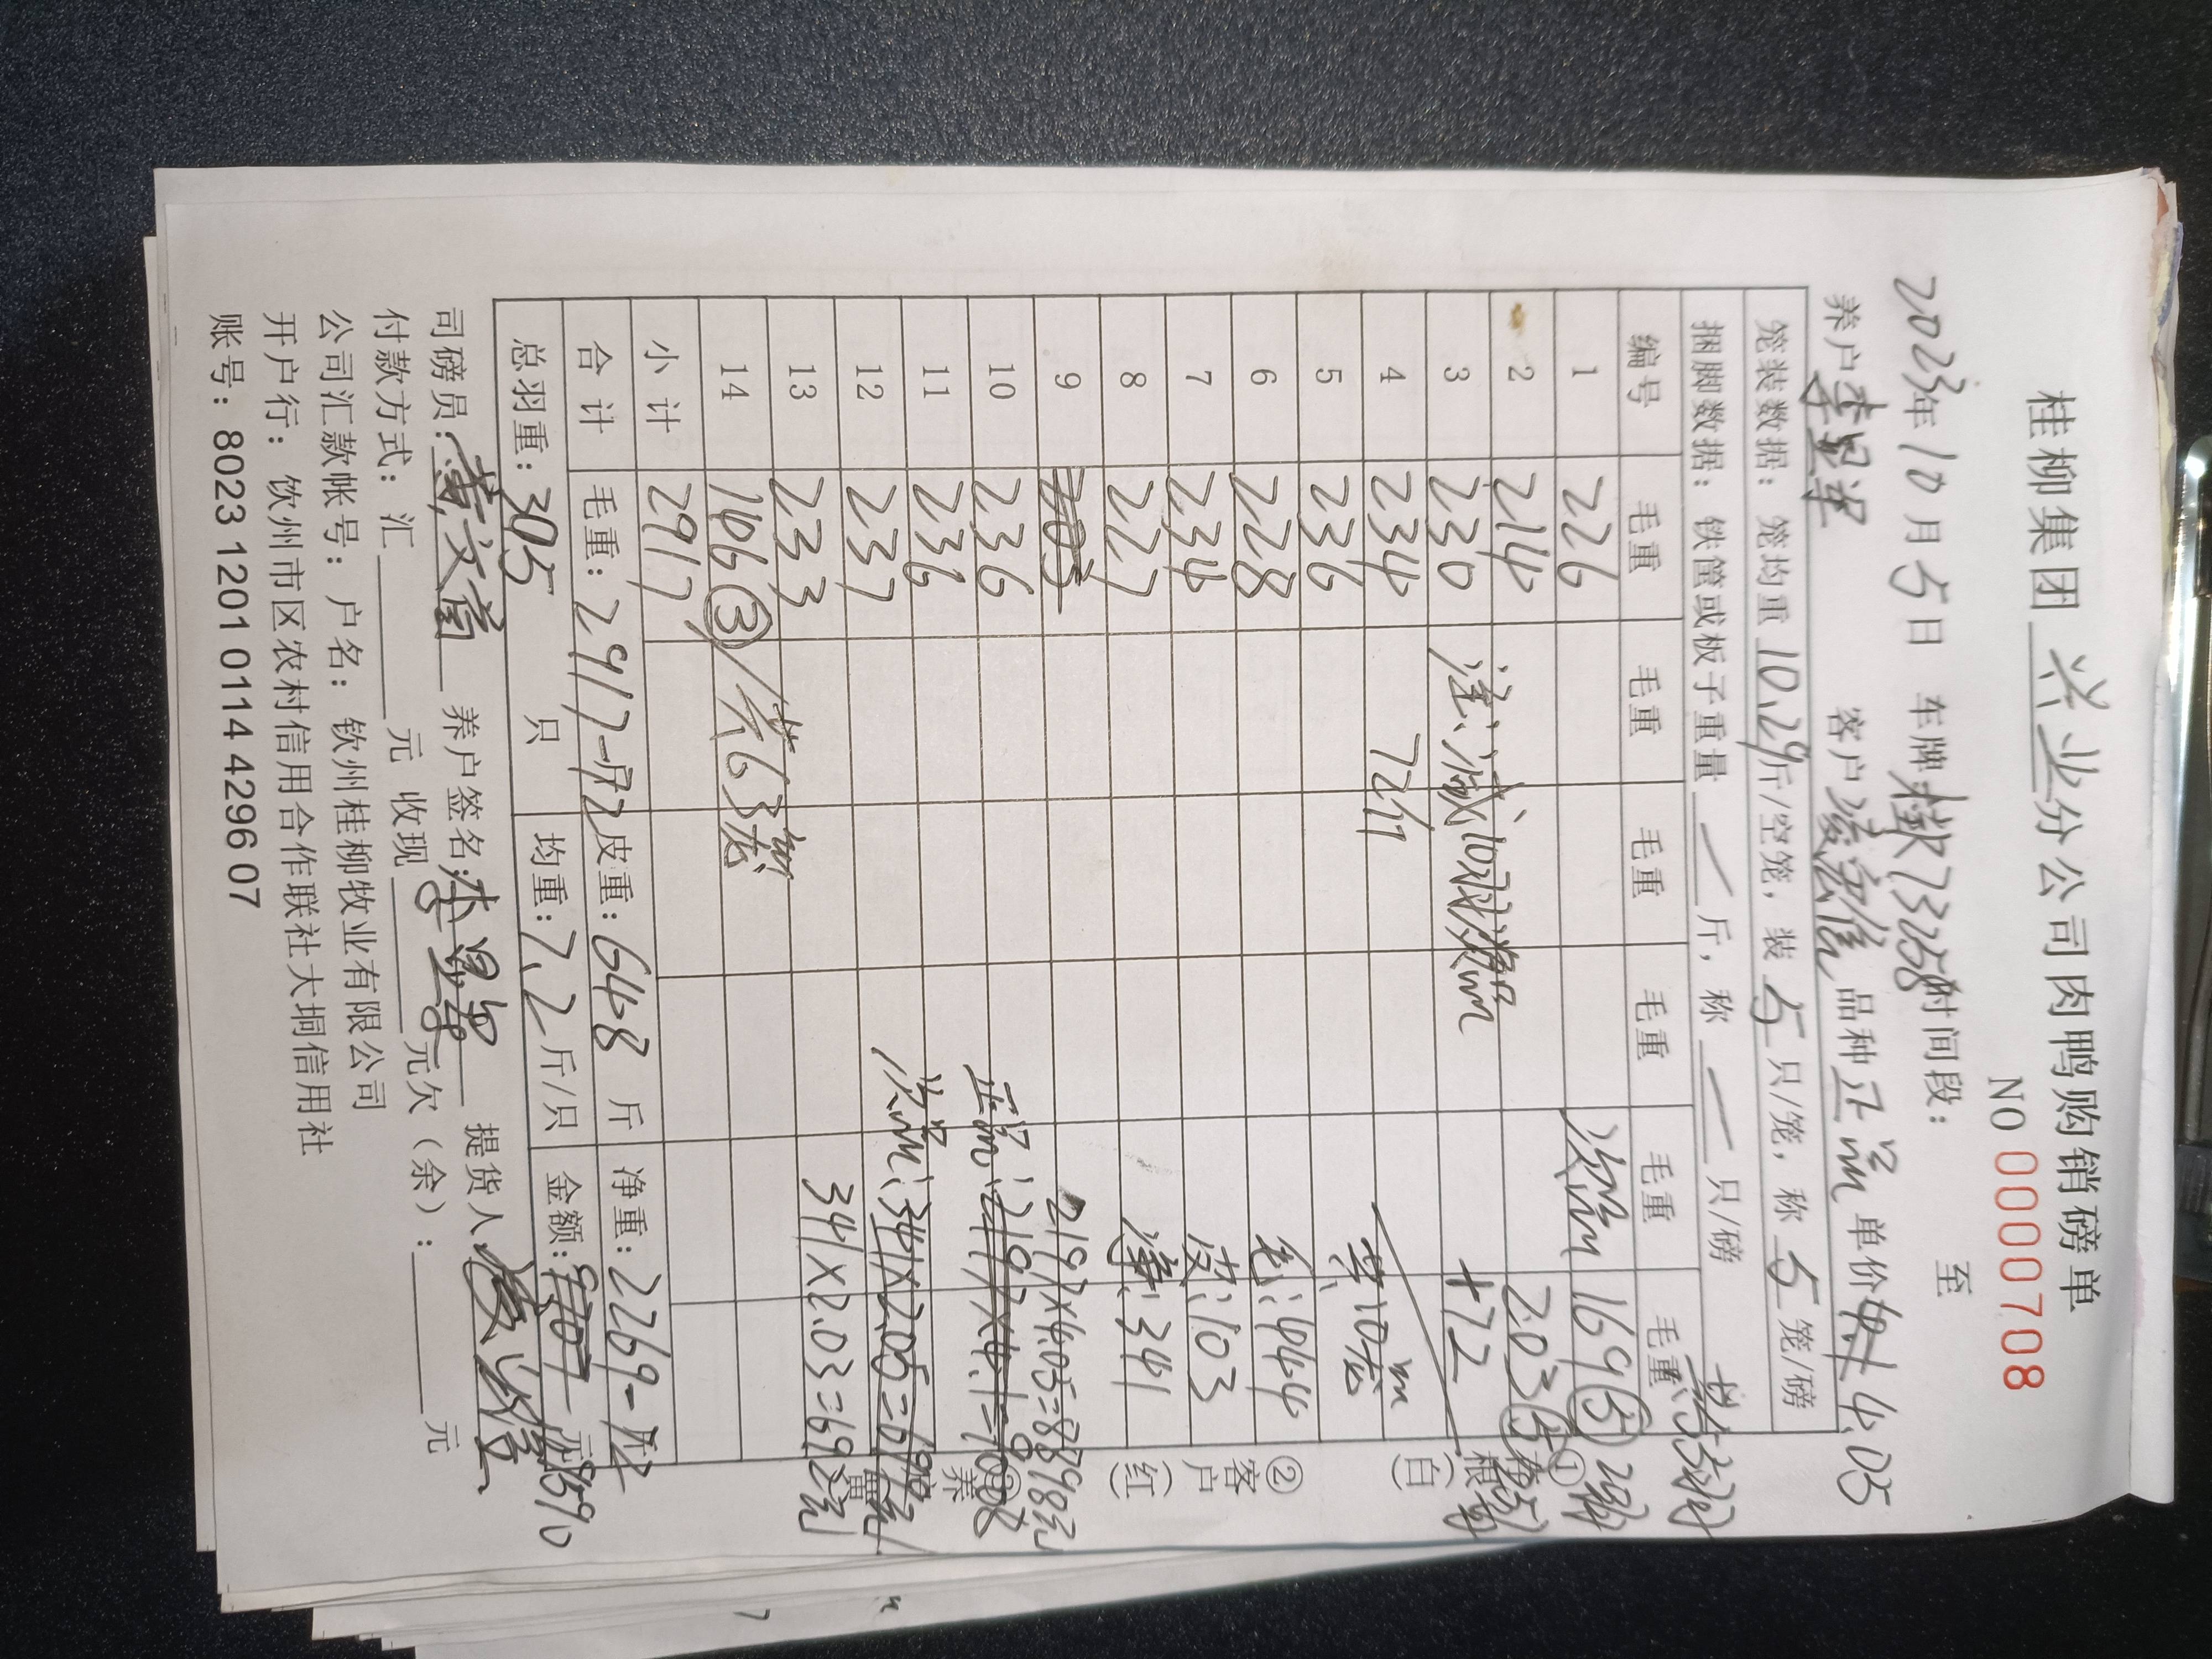 桂柳集团 兴业 分公司肉鸭购销磅单
NO 0000708
2023年10月5日 车牌:桂K73258 时间段: 至
养户 客户 凌宏信 品种 正品 单价 4.05
笼装数据: 笼均重 10.29 斤/空笼, 装 5 只/笼, 称 5 笼/磅
捆脚数据: 铁筐或板子重量 / 斤, 称 / 只/磅
编号 毛重 毛重 毛重 毛重 毛重 毛重
1 226 次品 169⑤
2 214 203⑤
3 230 +72
4 234 72斤 共10龙
5 236
6 228 毛:444
7 234 皮:103
8 227 净:341
9
10 236 2197×4.05=8898元
11 236 正品:2197×4.1=
12 237 次品:341×2.05=
13 233 341×2.03=692元
14 106③/共63龙
小计 2917
合计 毛重: 2917 皮重: 648 斤 净重: 2269
总羽重: 305 只 均重: 7.2 斤/只 金额: 元 9590
司磅员: 黄文 养户签名: 提货人:
付款方式: 汇 元 收现 元欠(余): 元
公司汇款帐号: 户名: 钦州桂柳牧业有限公司
开户行: 饮州市区农村信用合作联社大垌信用社
账号: 8023 1201 0114 4296 07
①
根
(白)
②
客户
(红)
养